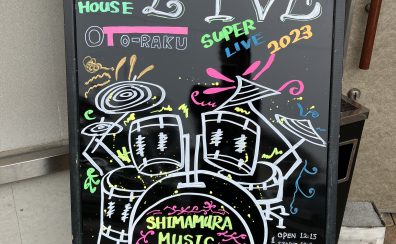 HOUSE LIVE
OTO-RAKU
SUPER
LIVE 2023
SHIMAMURA
MUSIC
OPEN 12:15